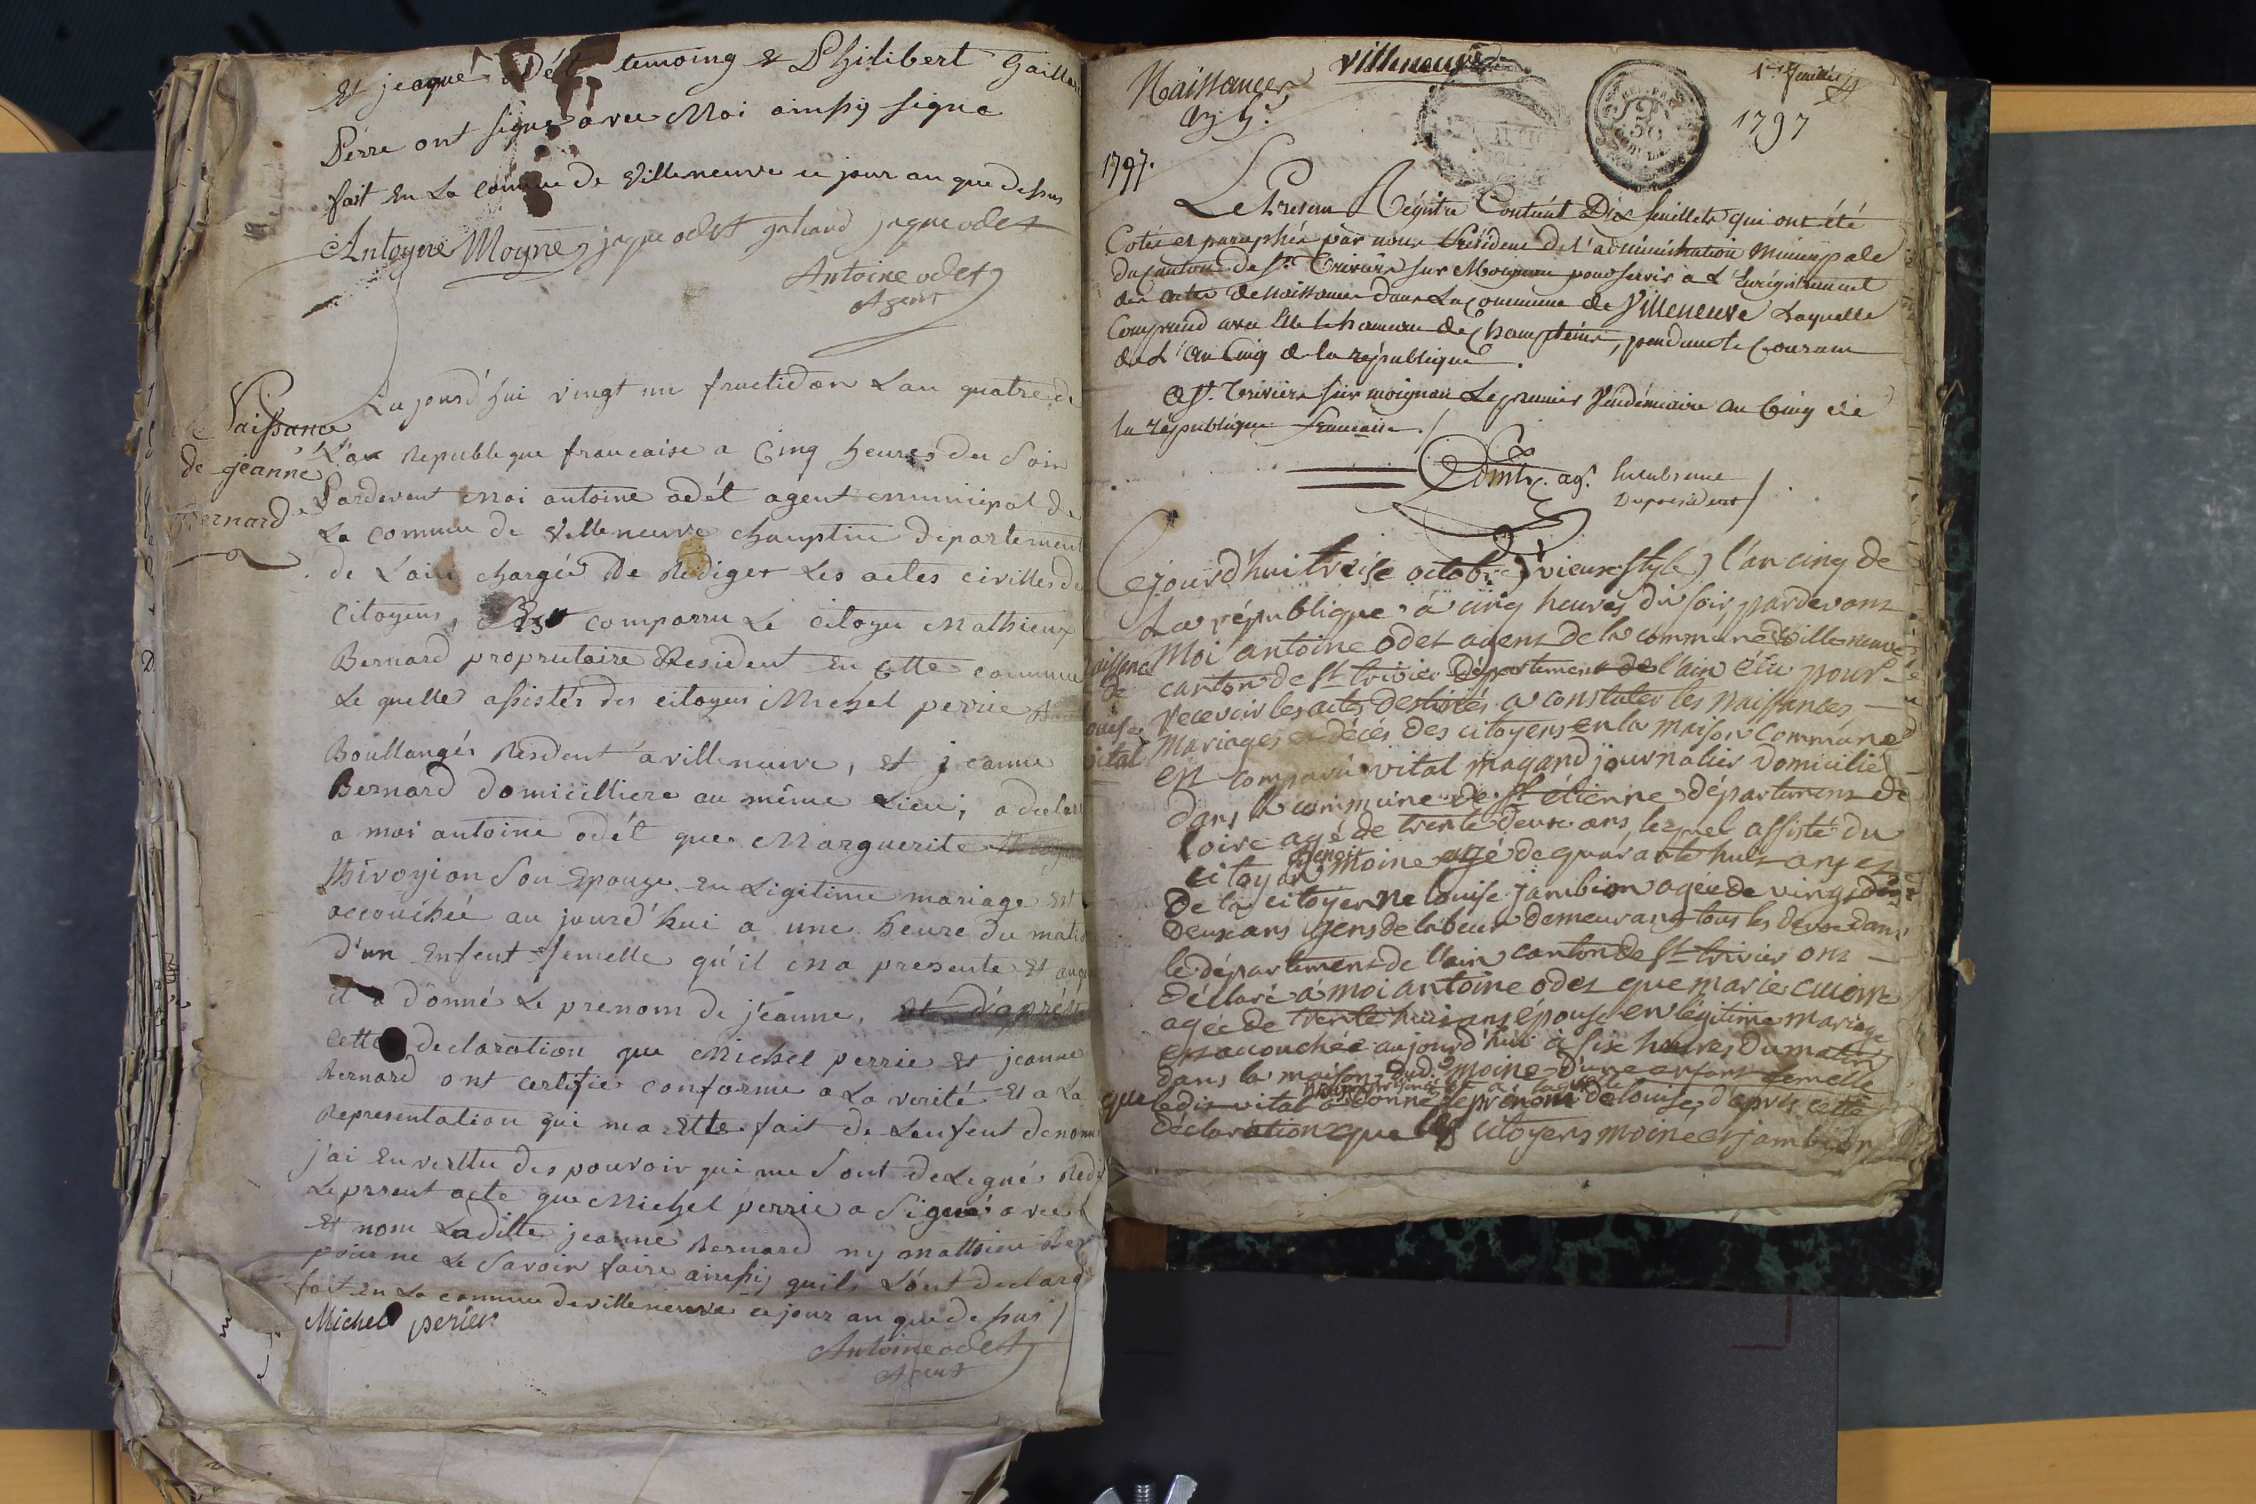 Et jeaque odét temoing & Philibert Gaillar
Pérre ont signé avec Moi ainssy signa
fait En La comune de Villeneuve ce jour an que dessus
Antoyne Moyne jaque odet galiard jaque odet
Antoine odet
Agent
Naissance
de jeanne
Bernard
Aujourd'hui vingt un fructidor L'an quatre de
La Republeque francaise a Cinq heures du Soir
Pardevent Moi antoine odét agent municipal de
La comune de Villeneuve champtin departement
de L'ain chargée De Rediger Les actes civilles de
Citoyens, Est comparru Le citoyen Mathieux
Bernard propriétaire Resident En Cette commune
Le quelle assistés des citoyens Michel perrie
Boullangér Resident a villeneuve, et jeanne
Bernard domicilliere au même Lieu, a declar
a moi antoine odét que Marguerite
thivoyion Son Epouze En Ligitime mariage Est
accouchée au jourd'hui a une heure du matin
d'un Enfent femelle qu'il ma presente Et auque
il a donné Le prenom de jéanne, d'aprés
cette declaration que Michel perrie Et jeanne
Bernard ont certifie conforme a La verité Et a La
Representation qui ma Ette fait de L'enfent denomm
j'ai En verttu des pouvoir qui me Sont deLegué Redi
Le present acte que Michel perrie a Signé avec
Et nom Laditte jeanne Bernard ny mathieu Ber
pour ne Le Savoir faire ainssy quils L'ont declaré
fait En La comune de villeneuve ce jour an que dessus
Michel periér
Antoine odet
Agent
Naissances
an 5e.
villeneuve
1er feuillet
1797
1797.
Le Présent Régistre Contient Dix feuillets qui ont été
Cotés et paraphés par nous Président de l'administration Municipale
du canton de St. Trivier sur Moignans pour servir à L'Enrégistrement
des actes de Naissance dans La commune de Villeneuve Laquelle
Comprend avec Elle le hameau de Champteins, pendant le Courant
de L'an Cinq de la république.
a St. Trivier sur moignan Le premier Vendémiaire an Cinq de
la république française.
ag. En L'absence
Du president
Naissance
de
Louise
vital
Cejourd'hui treise octobre (vieux style) l'an cinq de
La république à cinq heures du soir pardevant
Moi antoine odet agent de la commune de villeneuve
canton de St trivier Département de l'ain élu pour
recevoir les actes destinés a constater les Naissances
Mariages et décés des citoyens en la maison commune
est comparu vital magand journalier Domicilié
dans la commune de St étienne département de
Loire agé de trente deux ans, lequel assisté du
citoyen Benoit moine agé de quarante huit ans et
De la citoyenne louise jambion agée de vingt
Deux ans gens de labeur demeurant tous les deux dans
le département de l'ain canton de St trivier ont
Déclaré à moi antoine odet que marie
agée de trente huit ans épouse en légitime mariage
est accouchée aujourd'hui à six heures du matin
dans la maison dud. moine D'une enfant femelle
que ledit vital a donné le prénom de louise, d'après cette
déclaration que les citoyens moine et jambion